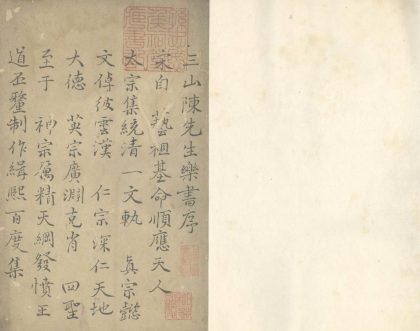 三山陳先生樂書序
宋自 藝祖基命順應天人
太宗集統清一文軌 真宗懿
文倬彼雲漢 仁宗深仁天地
大德 英宗廣淵克肖 四聖
至于 神宗厲精天綱發憤王
道丕釐制作緝熙百度集